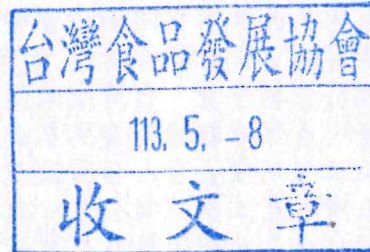 台灣食品發展協會
113. 5. -8
收文章